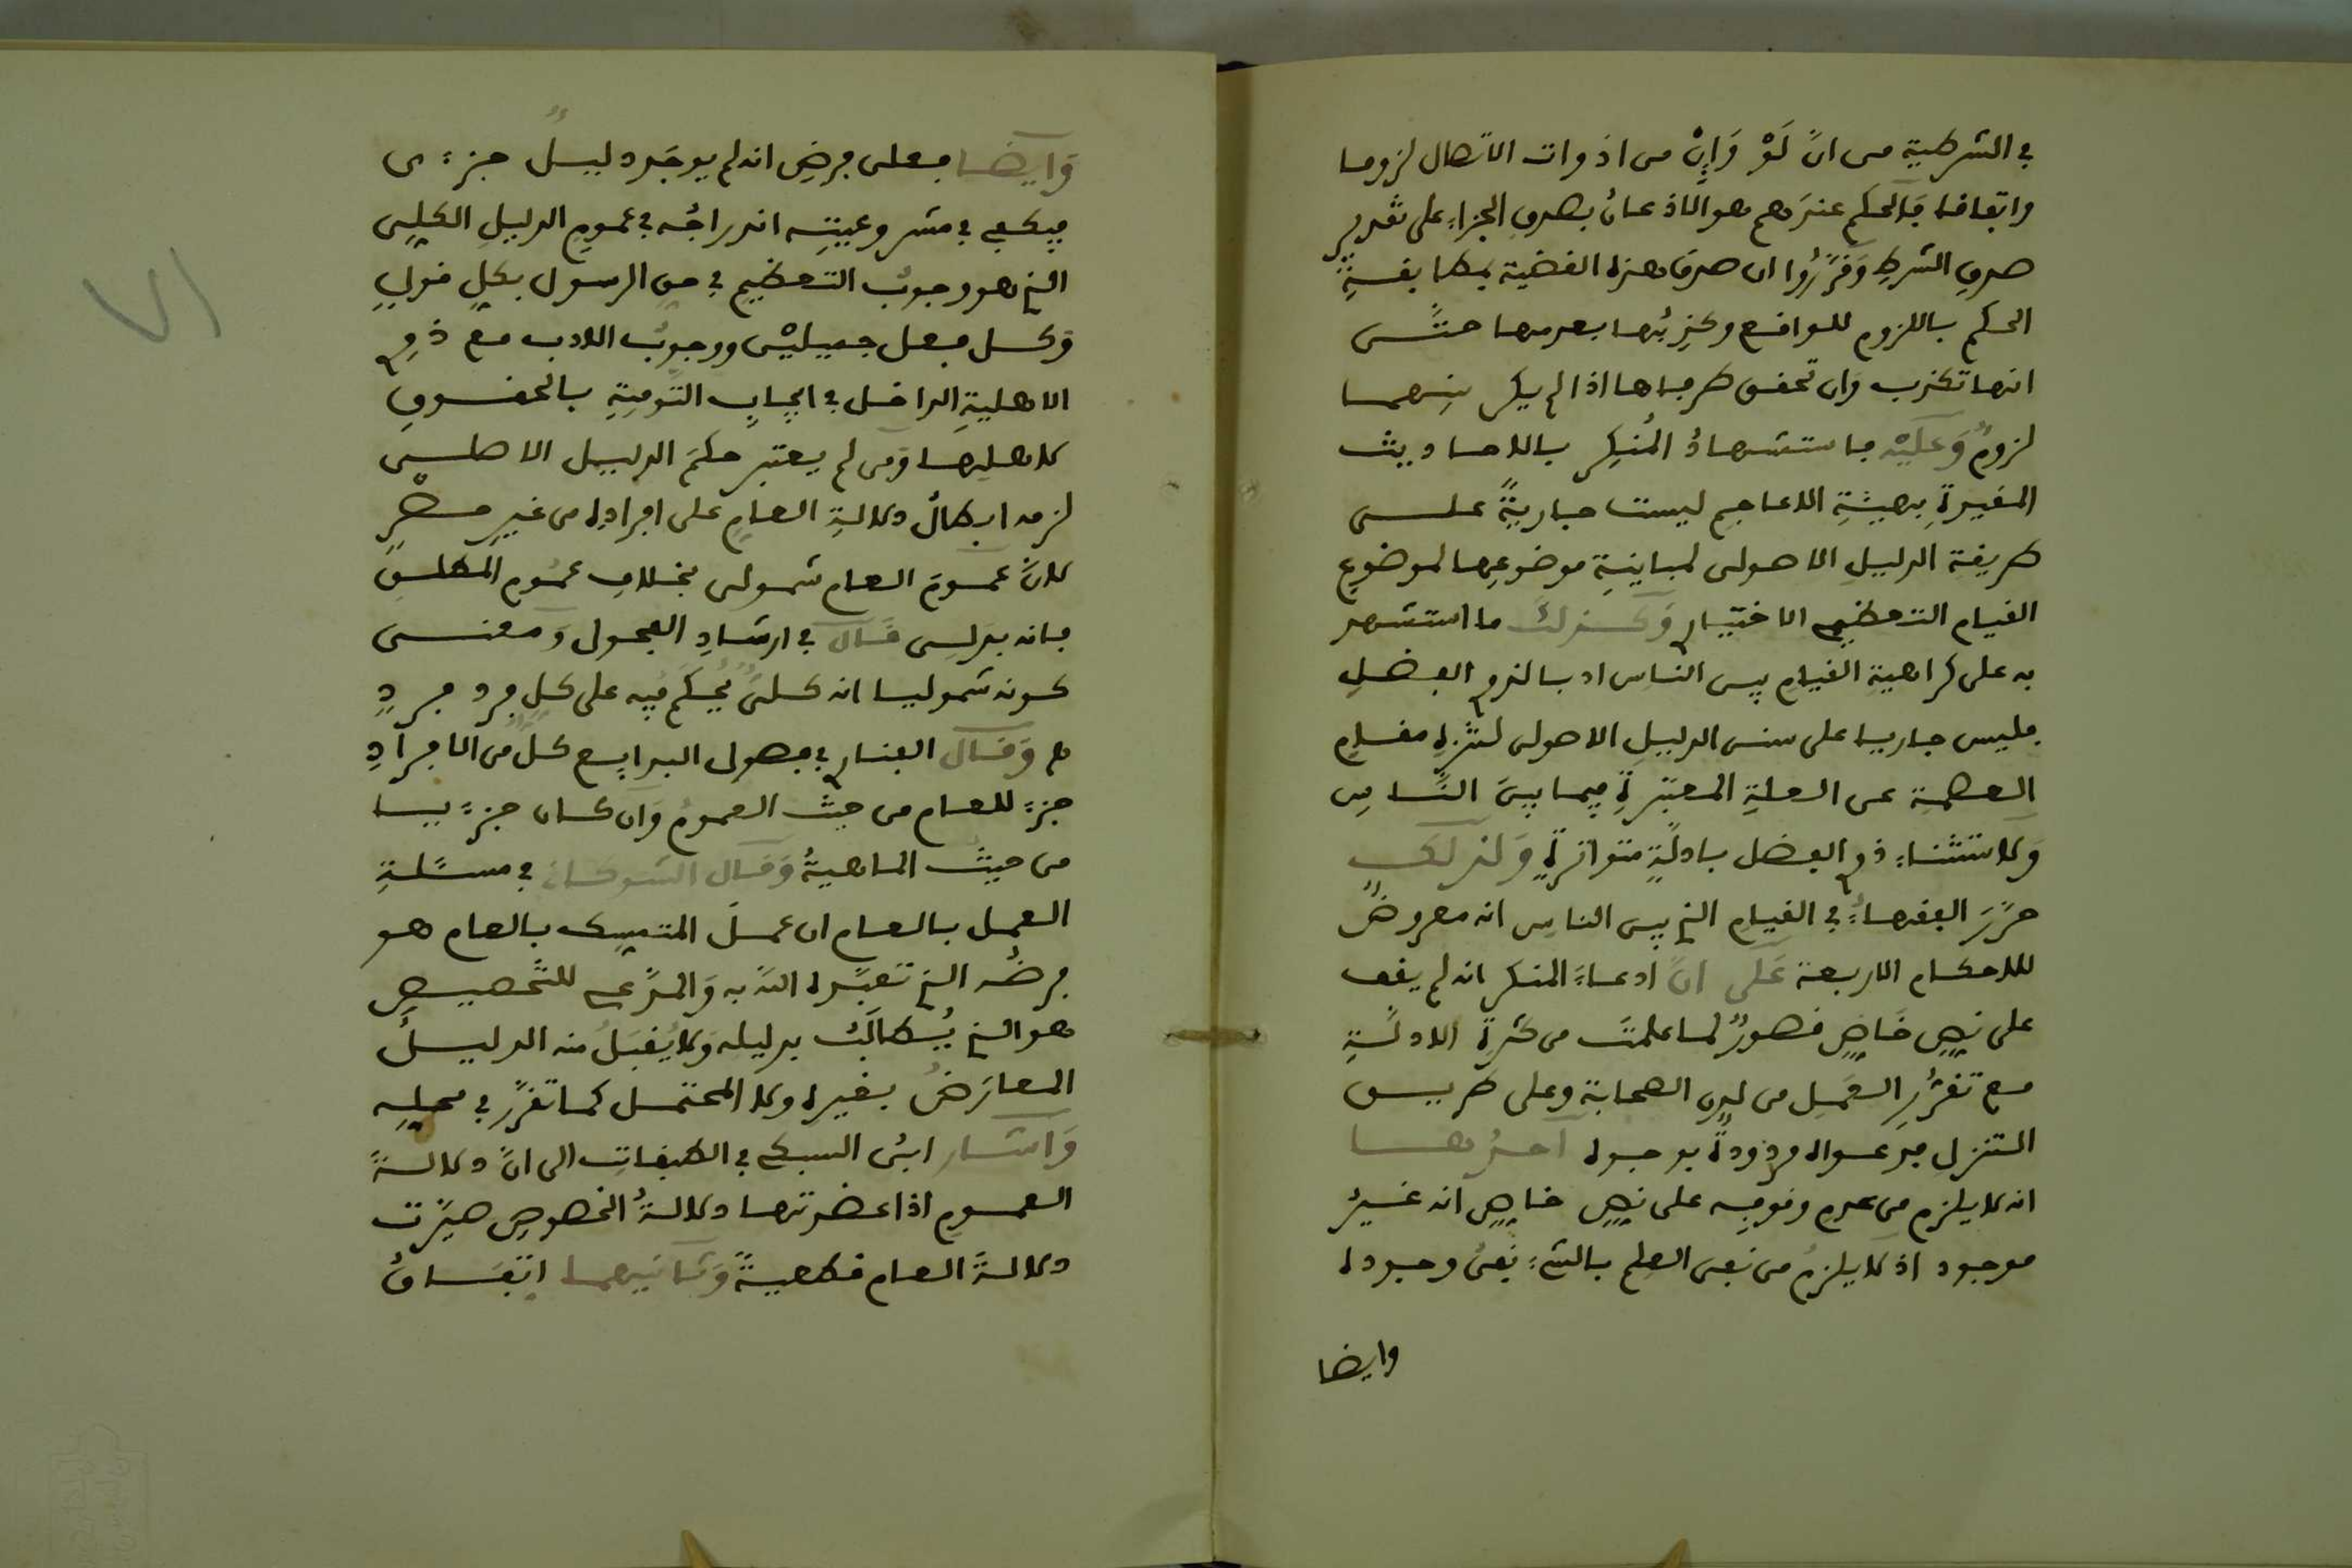 في الشرطية من انّ لَوْ وَإِنْ من اذوات الاتصال لزوما
واتفاقا فالحكم عندهم هو الاذعان بصدق الجزاء على تقدير
صدق الشرط وَقرّرُوا ان صدق هذه القضية بمطابقةِ
الحكم باللزوم للواقع وكذِبُها بعدمها حتّى
انها تكذب وان تحقق طرفاها اذا لم يكن بينهما
لزومٌ وَعَلَيْه فاستشهادُ المُنكِر بالاحاديث
المغيرةِ بهيئةِ الاعاجم ليست جاريةً على
طريقة الدليلِ الاصولى لمباينةِ موضوعِها لموضوعِ
القيام التعظيمي الاختياري وَكذلك ما استشهد
به على كراهيةِ القيامِ بين الناس ادبا لذوي الفضلِ
فليس جاريا على سنن الدليلِ الاصولى لتنزيه مقامِ
العصمة عن العلةِ المعتبرةِ فيما بينَ النّاسِ
وَلاستثناءِ ذوي الفضل بادلّةٍ متواترةٍ وَلذلك
حرّرَ الفقهاءُ في القيامِ الذي بين الناسِ انه معروضٌ
للاحكام الاربعة عَلى انّ ادعاءَ المنكر انه لم يقف
على نصٍ خَاصٍ قصورٌ لما علمتَ من كثرةِ الادلّةِ
مع تقرُّرِ العَمَلِ من لدن الصحابة وعلى طريق
التنزلِ فدعواه مردودةٌ بوجوه احدُها
انه لا يلزم من عدمِ وقوفِه على نصٍ خاصٍ انه غيرُ
موجود اذ لا يلزمُ من نفى العِلم بالشيءِ نفىُ وجوده
وايضا
وَايضا فعلى فرضِ انه لم يوجَد دليلٌ جزءى
فيكفى في مشروعيتِه اندراجُه في عمومِ الدليلِ الكلِى
الذي هو وجوبُ التعظيمِ في حق الرسول بكلِ قولٍ
وَكل فعل جميليْن ووجوبُ الادب مع ذوي
الاهليةِ الداخل في ايجابِ التوفيةِ بالحقوقِ
لاهلِيها وَمن لم يعتبر حكمَ الدليل الاصلى
لزمه ابطالُ دلالةِ العامِ على افرادِه من غيرِ حصْرٍ
لانّ عمومَ العام شمولى بخلافِ عمُومِ المطلقِ
فانه بدلِى قَالَ في ارشادِ الفحول وَمعنى
كونه شموليا انه كلىٌّ يُحكَمُ فيه على كلِ فرد فردٍ
هـ وَقَالَ الفناري في فصول البدايع كلٌّ من الافرادِ
جزءٌ للعام من حيث العمومُ وَان كان جزءيا
من حيثُ الماهيةُ وَقال الشوكانى في مسئلةِ
العمل بالعام ان عملَ المتمسِك بالعام هو
فرضُه الذي تعبّده الله به وَالمدّعى للتّخصيصِ
هو الذي يُطالَبُ بدليله وَلا يُقبَلُ منه الدليلُ
المعارَضُ بغيره ولا المحتمل كما تقرّر في محلِه
وَاشار ابنُ السبكى في الطبقاتِ الى انّ دلالةَ
العمومِ اذا عضدتها دلالةُ الخصوصِ صيّرت
دلالةَ العام قطعيةً وَثانيهما اتفاقُ
٧١